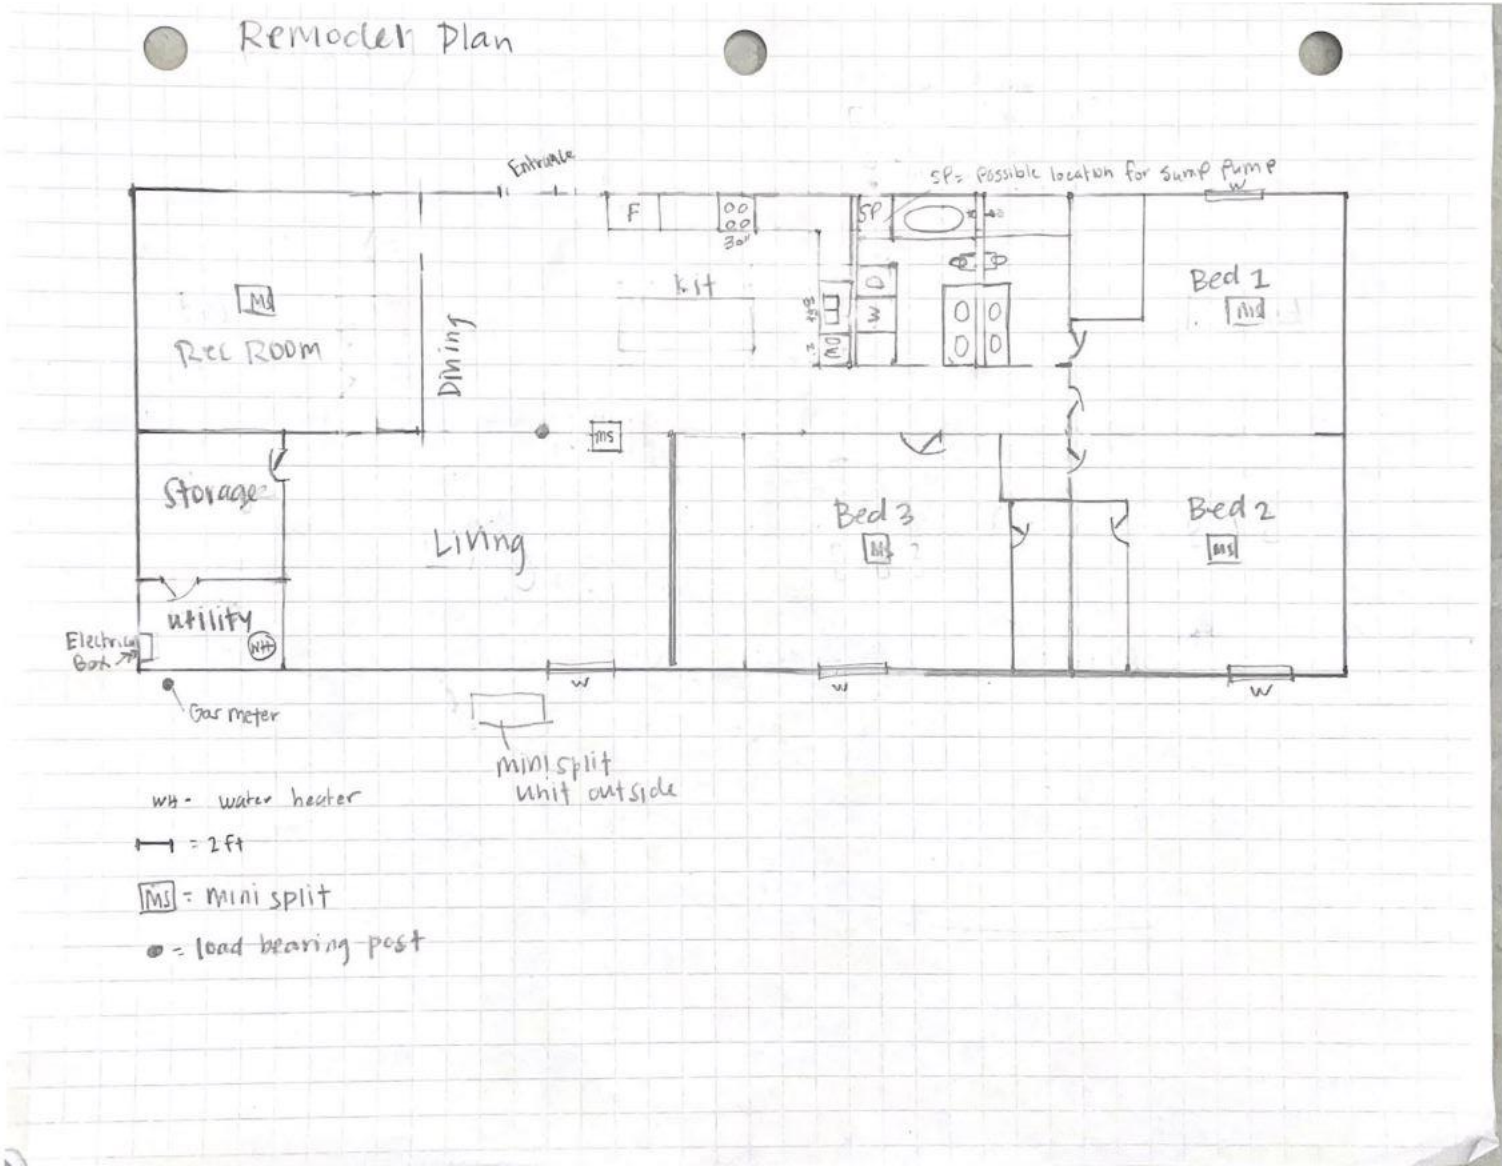 Remodel Plan
Entrance
SP= Possible location for Sump Pump
W
F
30"
SP
Kit
D
W
Bed 1
MS
MS
Rec Room
Dining
MS
Storage
Living
Bed 3
MS
Bed 2
MS
utility
WH
Electrical
Box
W
W
W
Gas meter
mini split
unit outside
WH - water heater
= 2ft
MS = mini split
= load bearing post